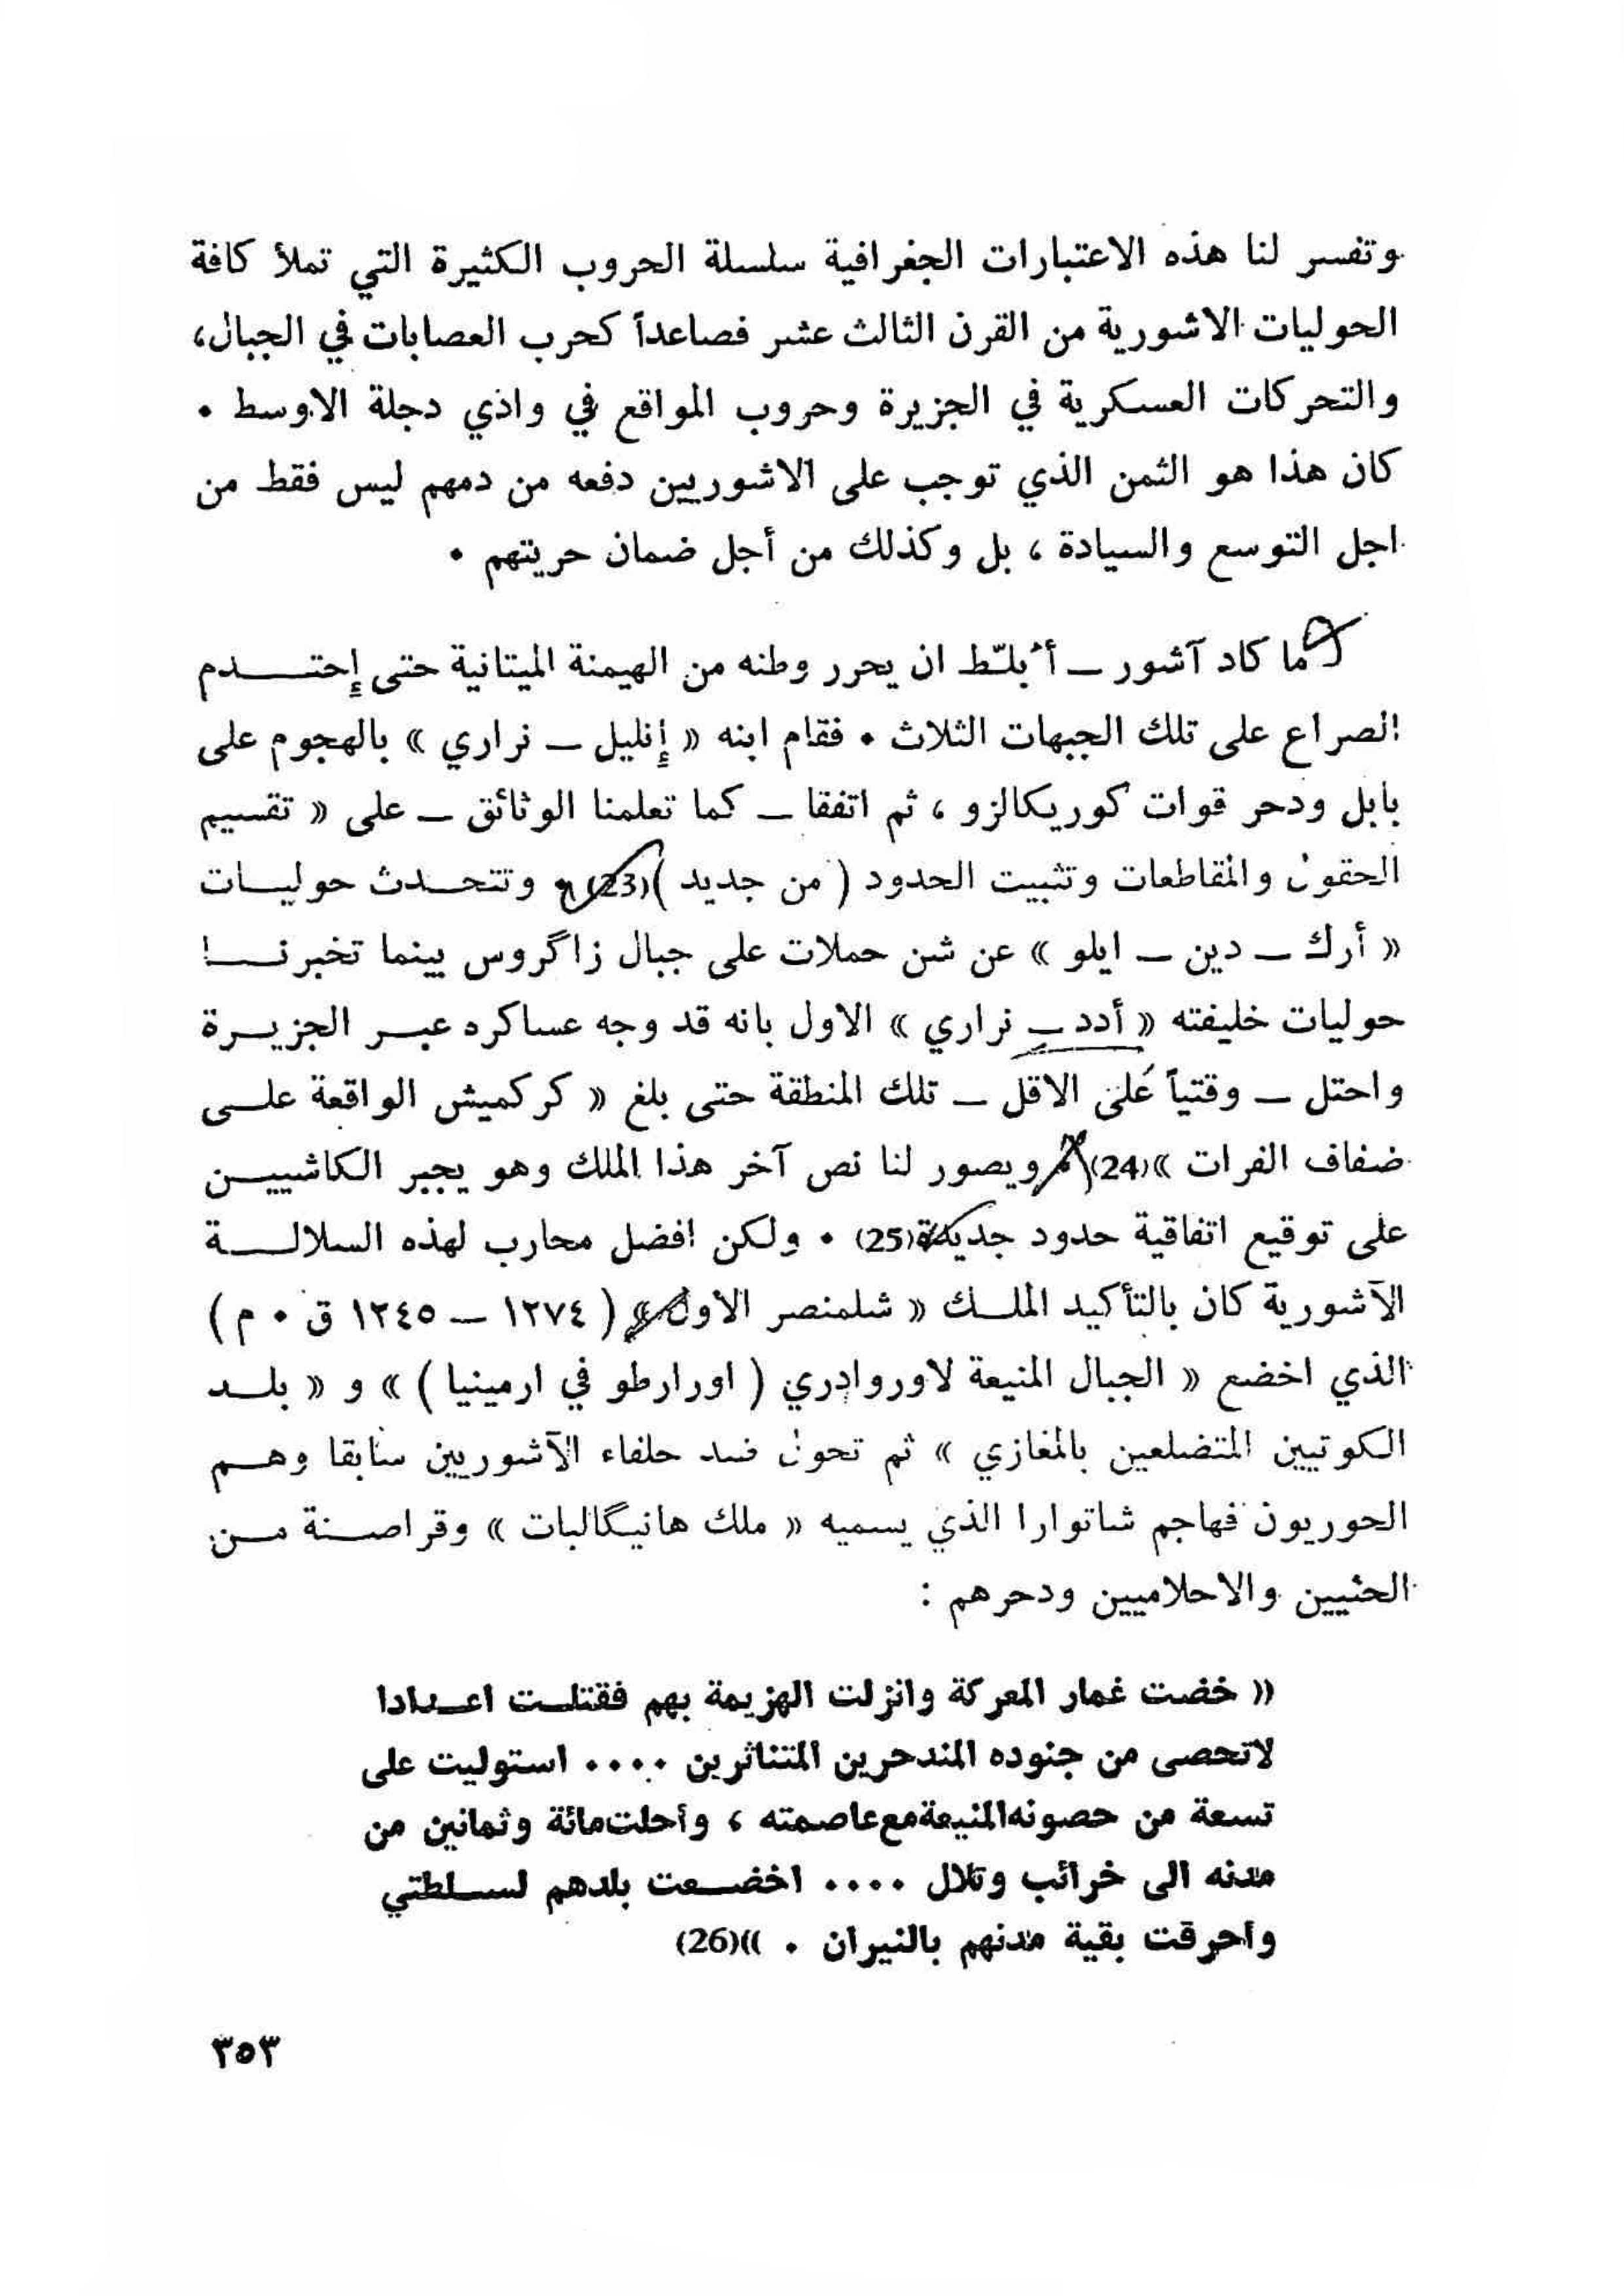 وتفسر لنا هذه الاعتبارات الجغرافية سلسلة الحروب الكثيرة التي تملأ كافة
الحوليات الاشورية من القرن الثالث عشر فصاعداً كحرب العصابات في الجبال،
والتحركات العسكرية في الجزيرة وحروب المواقع في واذي دجلة الاوسط .
كان هذا هو الثمن الذي توجب على الاشوريين دفعه من دمهم ليس فقط من
اجل التوسع والسيادة ، بل وكذلك من أجل ضمان حريتهم .
ما كاد آشور ــ أُبلّط ان يحرر وطنه من الهيمنة الميتانية حتى إحتـــدم
الصراع على تلك الجبهات الثلاث . فقام ابنه « إنليل ــ نراري » بالهجوم على
بابل ودحر قوات كوريكالزو ، ثم اتفقا ــ كما تعلمنا الوثائق ــ على « تقسيم
الحقول والمقاطعات وتثبيت الحدود ( من جديد )(23) . وتتحــدث حوليــات
« أرك ــ دين ــ ايلو » عن شن حملات على جبال زاگروس بينما تخبرنـــا
حوليات خليفته « أدد ــ نراري » الاول بانه قد وجه عساكره عبــر الجزيــرة
واحتل ــ وقتياً على الاقل ــ تلك المنطقة حتى بلغ « كركميش الواقعة علــى
ضفاف الفرات »(24) ويصور لنا نص آخر هذا الملك وهو يجبر الكاشييــن
على توقيع اتفاقية حدود جديدة(25) . ولكن افضل محارب لهذه السلالـــة
الآشورية كان بالتأكيد الملــك « شلمنصر الاول » ( ١٢٧٤ ــ ١٢٤٥ ق . م )
الذي اخضع « الجبال المنيعة لاوروادري ( اورارطو في ارمينيا ) » و « بلــد
الكوتيين المتضلعين بالمغازي » ثم تحول ضد حلفاء الآشوريين سابقا وهــم
الحوريون فهاجم شاتوارا الذي يسميه « ملك هانيگالبات » وقراصــنة مــن
الحثيين والاحلاميين ودحرهم :
« خضت غمار المعركة وانزلت الهزيمة بهم فقتلــت اعــدادا
لاتحصى من جنوده المندحرين المتناثرين .... استوليت على
تسعة من حصونه المنيعة مع عاصمته ، وأحلت مائة وثمانين من
مدنه الى خرائب وتلال .... اخضــعت بلدهم لســلطتي
واحرقت بقية مدنهم بالنيران . »(26)
٣٥٣